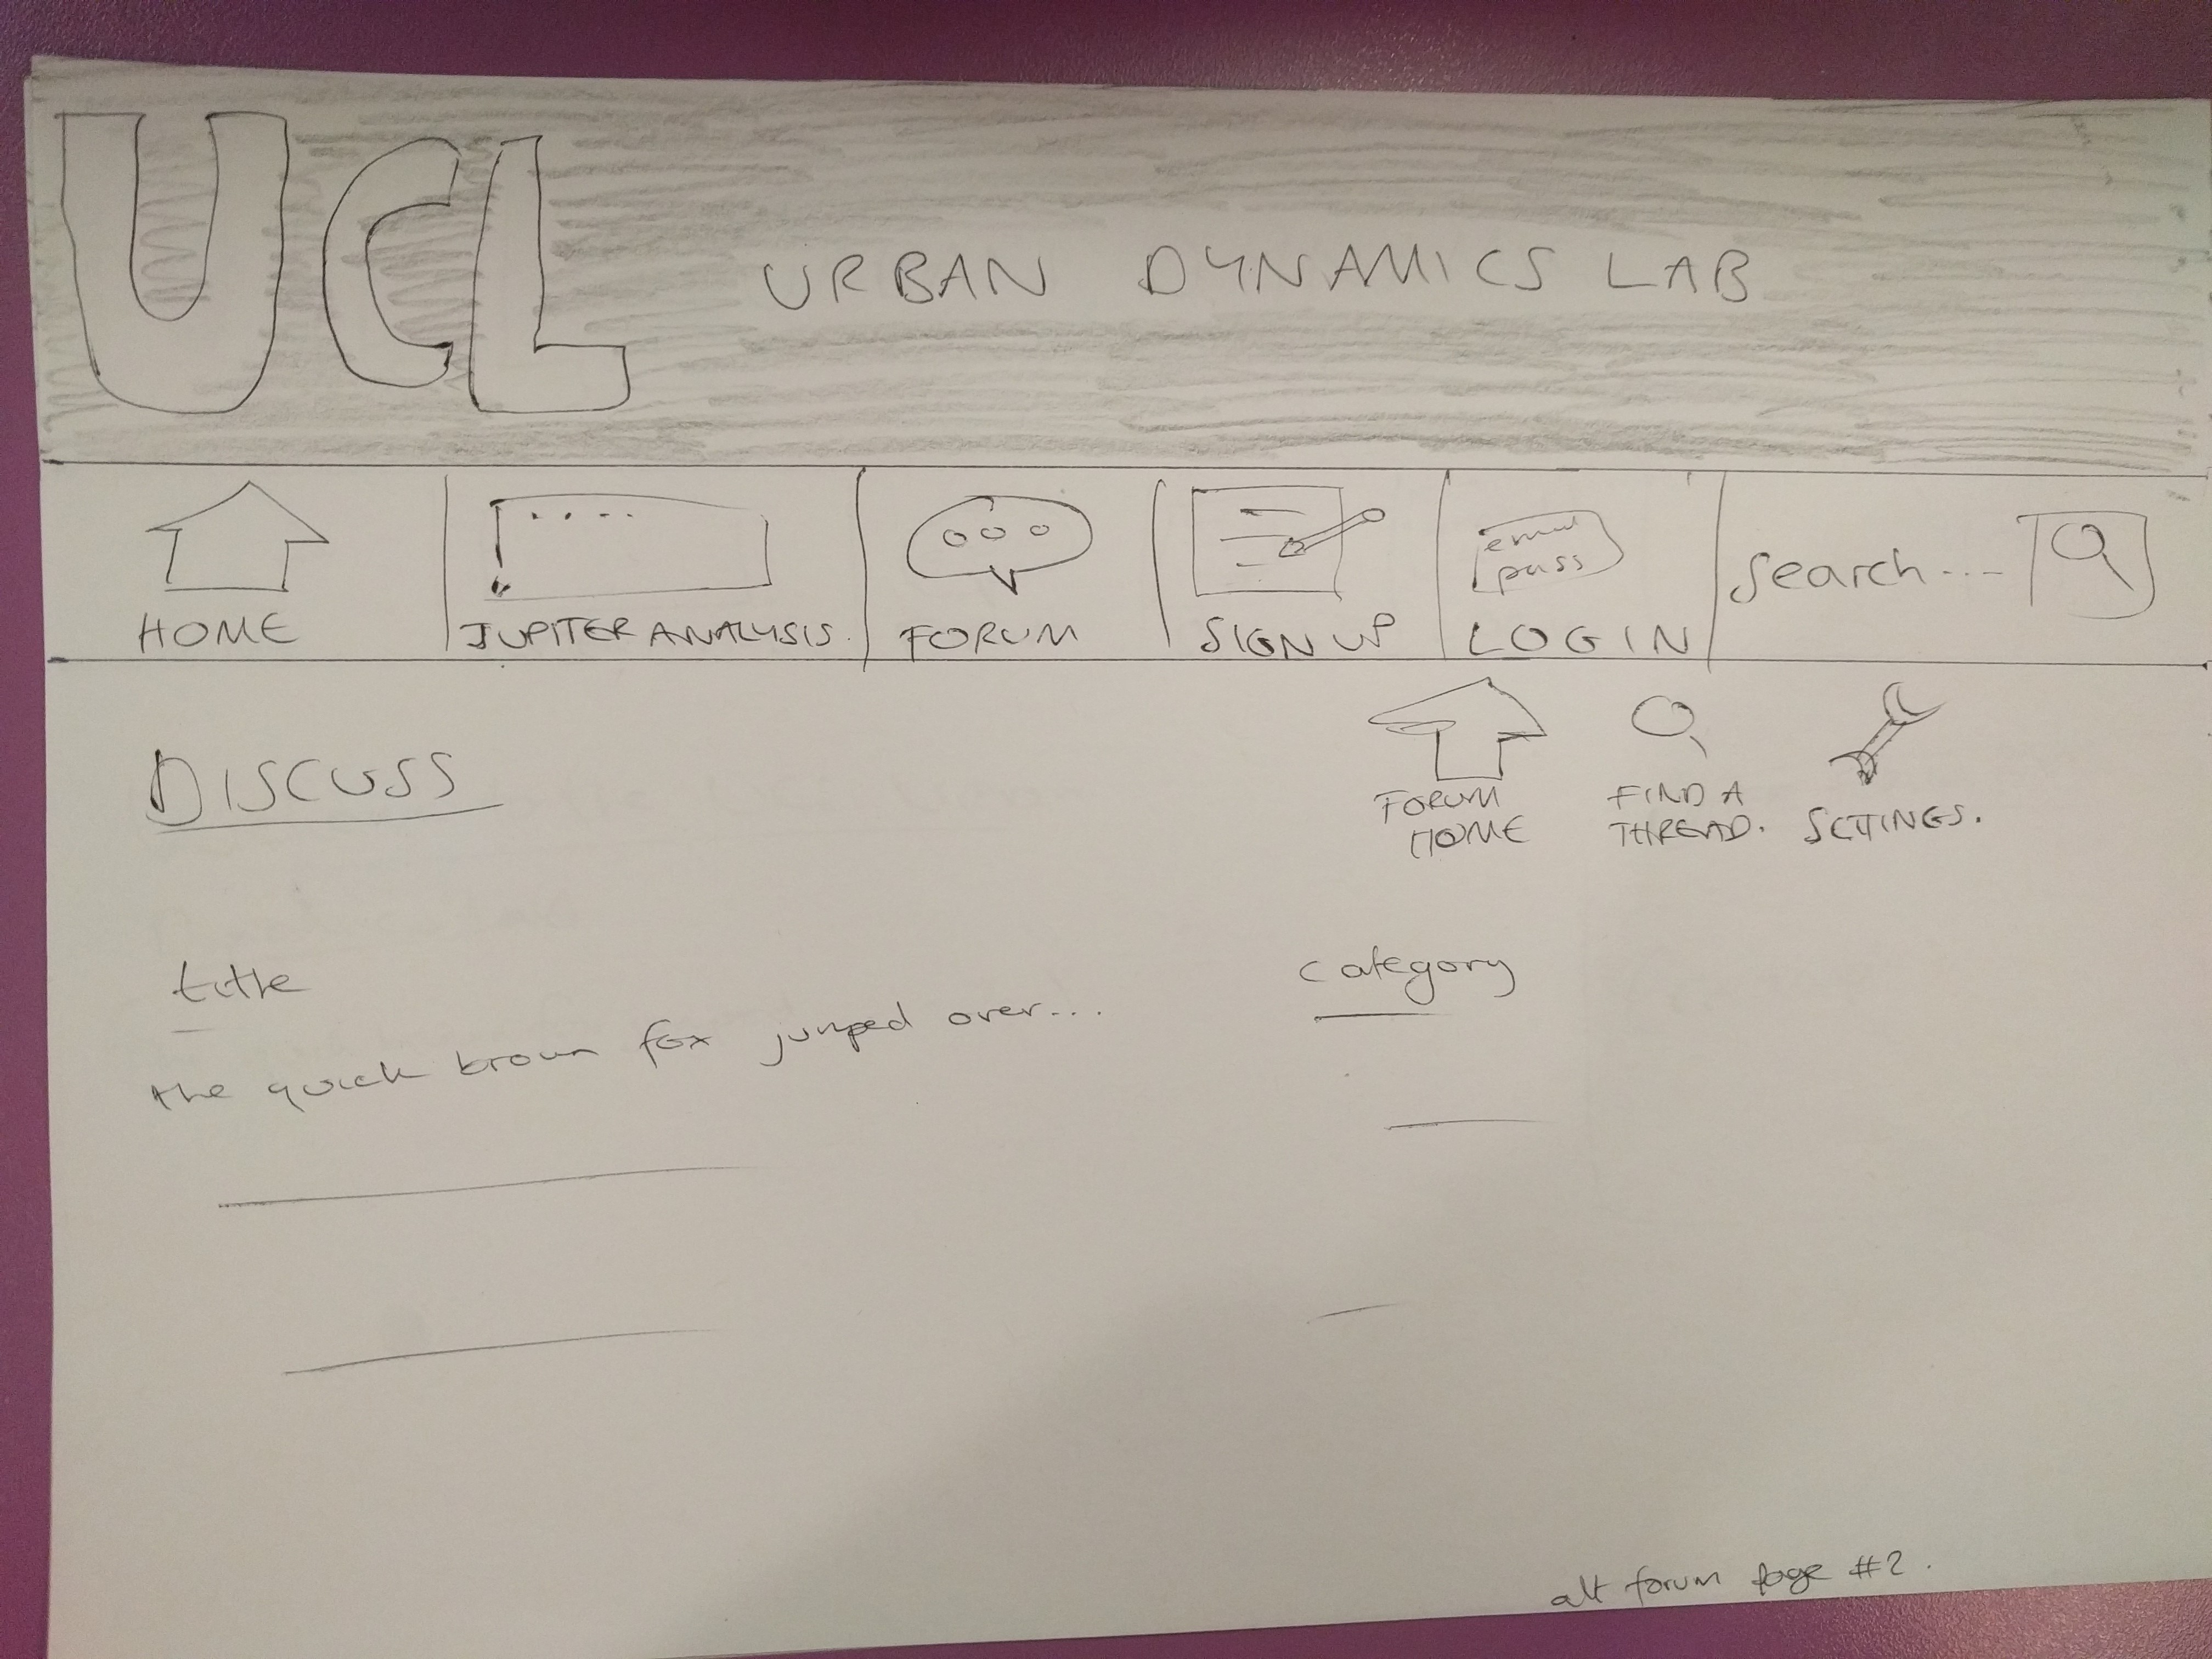 UCL
URBAN DYNAMICS LAB
HOME
JUPITER ANALYSIS.
FORUM
SIGN UP
email
pass
LOGIN
Search...
DISCUSS
FORUM
HOME
FIND A
THREAD.
SETTINGS.
title
category
the quick brown fox jumped over...
alt forum page #2.